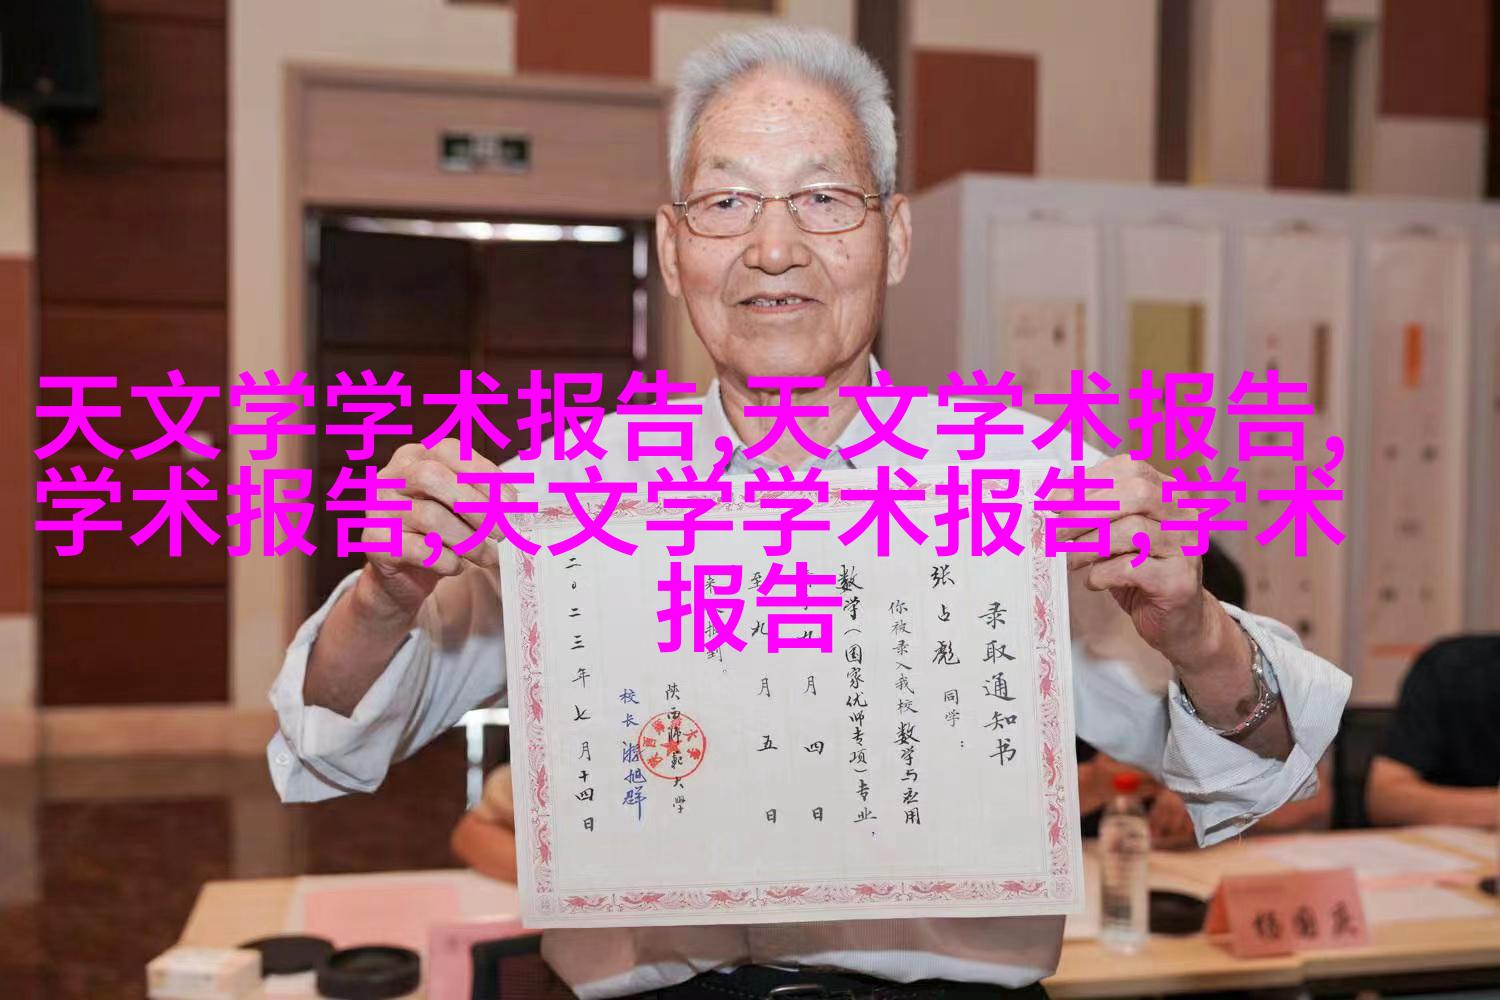 天文学学术报告,天文学术报告,
学术报告,天文学学术报告,学术
报告
录取通知书
张占彪同学：
你被录入我校数学与应用
数学（国家优师专项）专业，
月四日
至九月五日
来校报到。
陕西师范大学
校长游旭群
二〇二三年七月十四日
杨国庆